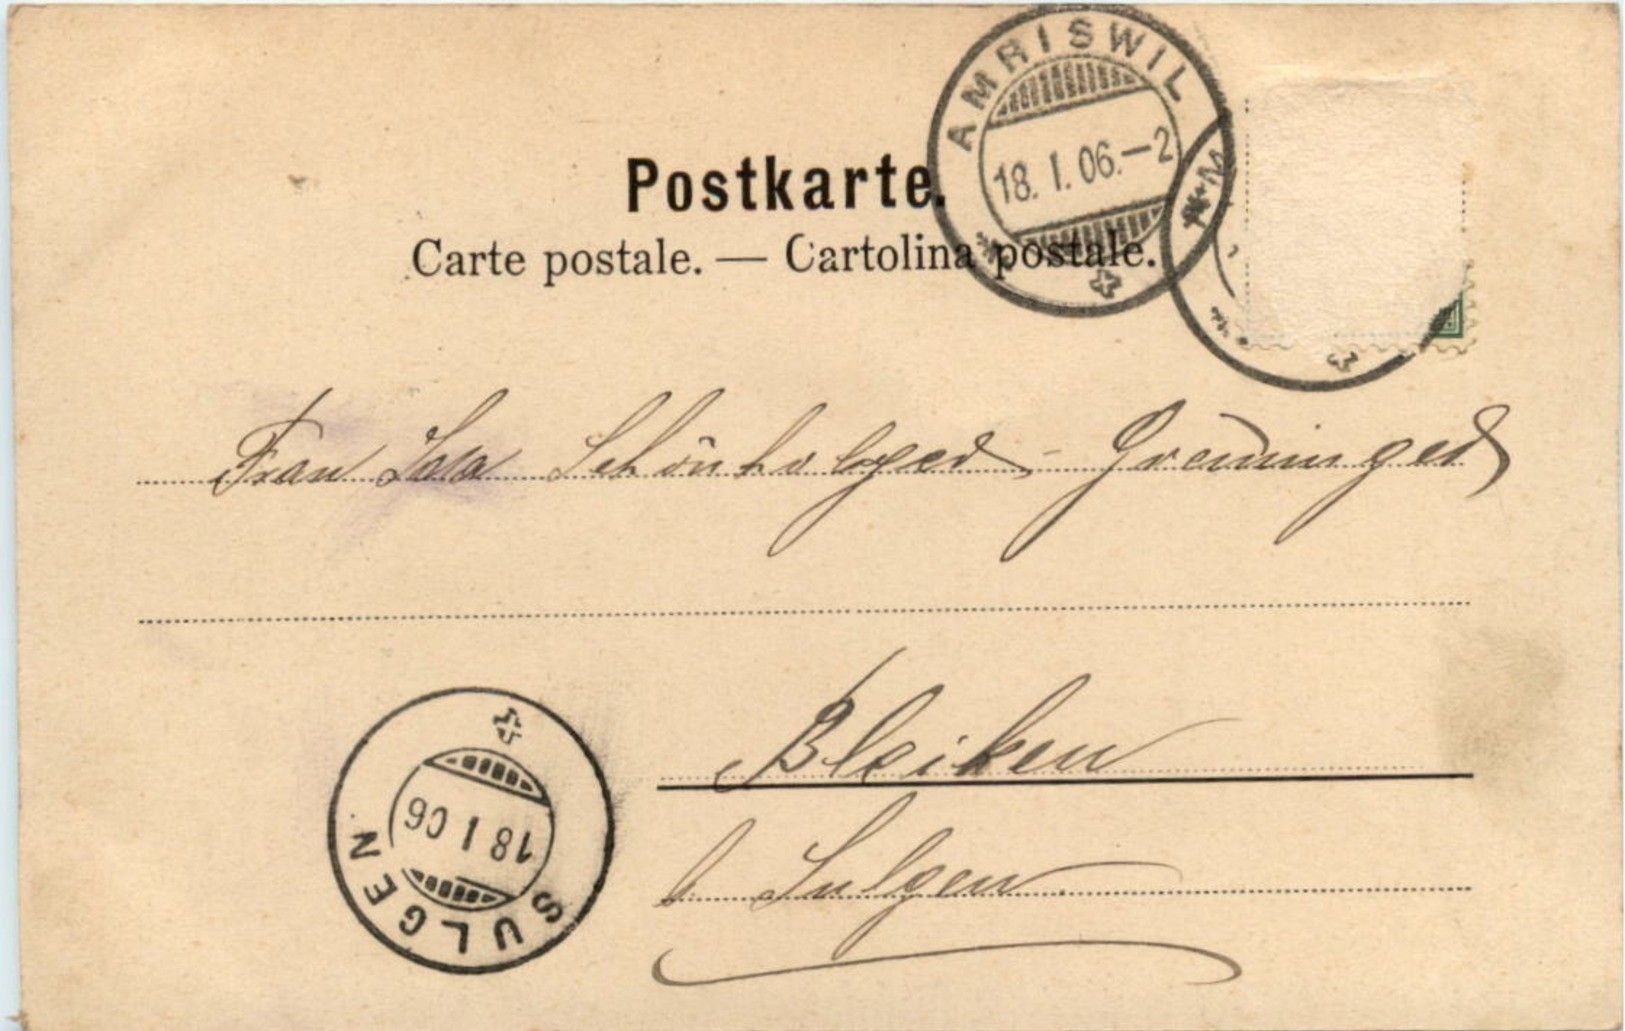 AMRISWIL
18. I. 06.–2
Postkarte.
Carte postale. — Cartolina postale.
Frau Schönholzer - Greminger
Bleiken
b. Sulgen
SULGEN
18 I 06